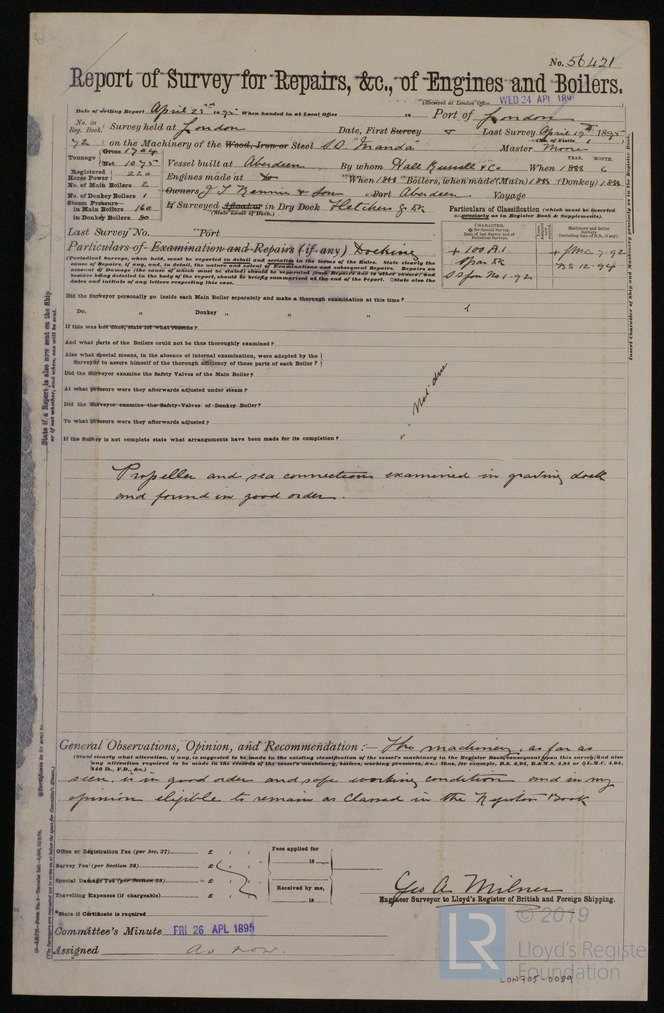 No. 56421
Report of Survey for Repairs, &c., of Engines and Boilers.
(Received at London Office WED 24 APL 189
Date of writing Report April 23rd 1895 When handed in at Local Office 18 Port of London
No. in Reg. Book. Survey held at London Date, First Survey Last Survey April 19th 1895
72 on the Machinery of the Wood, Iron or Steel S.S. "Inanda" Master
Tonnage Gross 1764
Net 1075 Vessel built at Aberdeen By whom Hall Russell & Co When 1888 6
YEAR. MONTH.
Registered Horse Power 220 Engines made at do When 1888 Boilers, when made (Main) 1888 (Donkey) 1888
No. of Main Boilers 2
No. of Donkey Boilers 1 Owners J T Rennie & Son Port Aberdeen Voyage
Steam Pressure in Main Boilers 160 If Surveyed Afloat or in Dry Dock Fletchers G. Dk
(State name of Dock.)
in Donkey Boilers 80
Particulars of Classification (which must be inserted precisely as in Register Book & Supplements).
Last Survey No. Port
Particulars of Examination and Repairs (if any) Docking
+ 100 A.1. + LMC 7.92
Spar Dk B.S 12.94
SS for No 1-92
Did the Surveyor personally go inside each Main Boiler separately and make a thorough examination at this time?
Do. " Donkey " " " "
If this was not done, state for what reasons?
And what parts of the Boilers could not be thus thoroughly examined?
Also what special means, in the absence of internal examination, were adopted by the Surveyor to assure himself of the thorough efficiency of those parts of each Boiler?
Did the Surveyor examine the Safety Valves of the Main Boiler?
At what pressure were they afterwards adjusted under steam?
Not due
Did the Surveyor examine the Safety Valves of Donkey Boiler?
To what pressure were they afterwards adjusted?
If the Survey is not complete state what arrangements have been made for its completion?
Propeller and sea connections examined in graving dock
and found in good order.
General Observations, Opinion, and Recommendation:— The machinery, as far as
(State clearly what alteration, if any, is suggested to be made in the existing classification of the vessel's machinery in the Register Book consequent upon this survey and also
any alteration required to be made in the records of the vessel's machinery, boilers, working pressures, &c.; thus, for example, B.S. 4,94, B.&M.S. 4,94 or L.M.C. 4.94,
140 lb., F.D., &c.)
seen, is in good order and safe working condition and in my
opinion eligible to remain as Classed in the Register Book
Office or Registration Fee (per Sec. 27) £ Fees applied for
Survey Fee (per Section 28) £ 18
Special Damage Fee (per Section 28) £ Received by me,
Travelling Expenses (if chargeable) £ 18
Geo A. Milner
Engineer Surveyor to Lloyd's Register of British and Foreign Shipping.
State if Certificate is required
Committee's Minute FRI 26 APL 1895
Assigned as now.
LR © 2019
Lloyd's Register
Foundation
LON705-0089